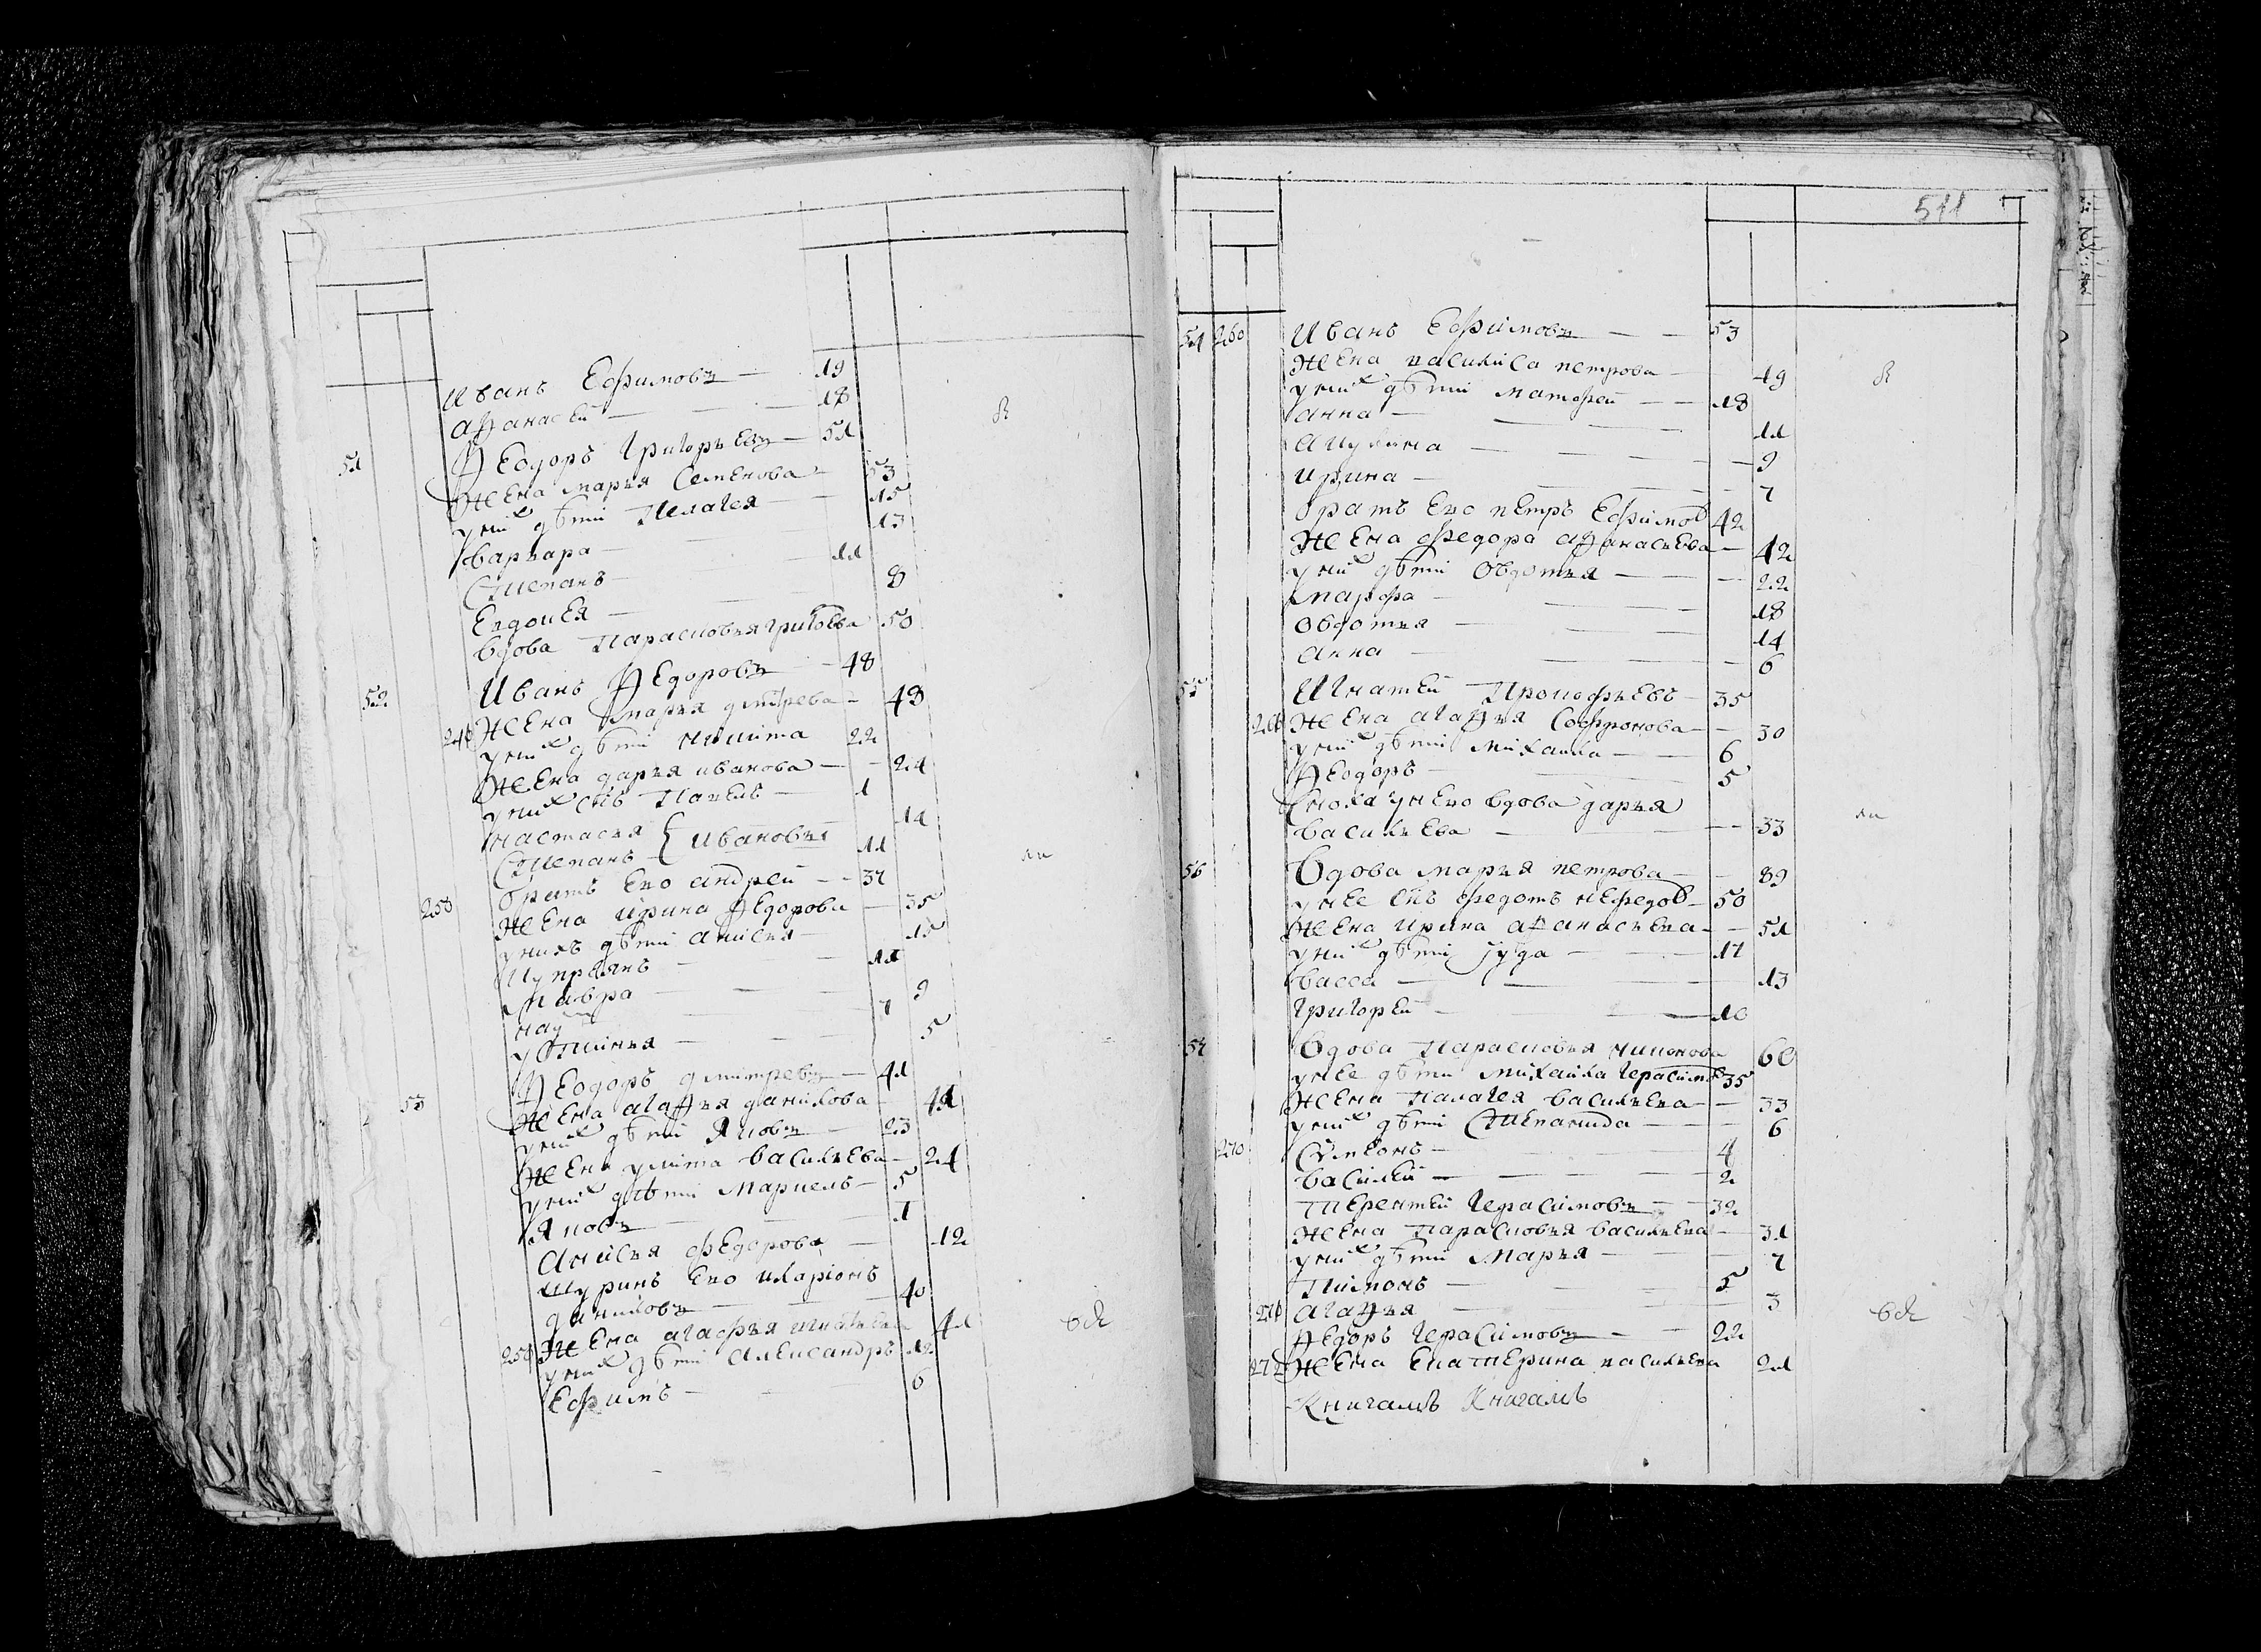 Иванъ Ефимовъ — 19
Афанасей — 18
51 Ѳеодоръ Григорьевъ — 51
Жена марья Семенова — 53
у них дѣти Пелагея — 15
варвара — 13
Степанъ — 11
Евдокея — 8
вдова Парасковья григоева 50
52 Иванъ Ѳедоровъ — 48
Жена марья дмитрева — 48
у них дѣти никита 22
Жена дарья иванова — 24
у них снъ Павелъ — 1
настасея 14
Степанъ { ивановы 11
250 братъ Ево андрей — 37
Жена ирина Ѳедорова — 35
у нихъ дѣти анисья — 15
Купреянъ — 11
мавра — 9
наум 7
устинья — 5
53 Ѳеодоръ дмитревъ — 41
Жена агаѲья данилова — 41
у них дѣти Яковъ — 23
Жена улита васильева — 24
у них дѣти маркелъ — 5
Яковъ — 1
Анисья федорова — 12
Шуринъ Ево иларіонъ
даниловъ — 40
Жена агафья 41
у них дѣти Александръ 12
Ефимъ — 6
вѣ
511
54 260 Иванъ Ефимовъ — 53
Жена василиса петрова — 49
у них дѣти матфей — 18
анна — 11
Акулина — 9
ирина — 7
братъ Ево петръ Ефимов 42
Жена федора аѲанасьева — 42
у них дѣти Овдотья — 22
марфа — 18
овдотья — 14
анна — 6
55 Игнатей Прокофьевъ — 35
Жена агаѲья Софронова — 30
у них дѣти михаила — 6
Ѳеодоръ — 5
Сноха у нево вдова дарья
васильева — 33
56 Вдова марья петрова — 89
у нее снъ федотъ нефедов — 50
Жена ирина аѲанасьева — 51
у них дѣти Іуда — 17
васса — 13
Григорей — 10
57 Вдова Парасковья никонова 60
у нее дѣти михаила Герасимов 35
Жена Палагея васильева — 33
у них дѣти Степанида — 6
270 Симеонъ — 4
василей — 2
Терентей Герасимовъ — 32
Жена Парасковья васильева — 31
у них дѣти марья — 7
Пимонъ — 5
271 агаѲья — 3
Ѳедоръ Герасимовъ — 22
272 Жена Екатерина васильева 21
Книгамъ Книгамъ